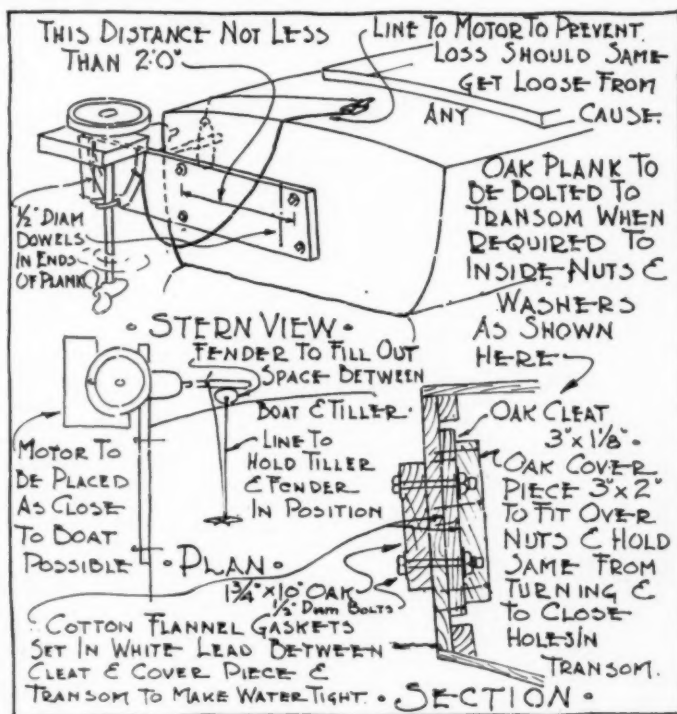 THIS DISTANCE NOT LESS
THAN 2'0"
LINE TO MOTOR TO PREVENT
LOSS SHOULD SAME
GET LOOSE FROM
ANY CAUSE.
1/2" DIAM
DOWELS
IN ENDS
OF PLANK
OAK PLANK TO
BE BOLTED TO
TRANSOM WHEN
REQUIRED TO
INSIDE NUTS &
WASHERS
AS SHOWN
HERE
• STERN VIEW •
FENDER TO FILL OUT
SPACE BETWEEN
BOAT & TILLER.
LINE TO
HOLD TILLER
& FENDER
IN POSITION
MOTOR TO
BE PLACED
AS CLOSE
TO BOAT
POSSIBLE
• PLAN •
OAK CLEAT
3" x 1 1/8" •
OAK COVER
PIECE 3" x 2"
TO FIT OVER
NUTS & HOLD
SAME FROM
TURNING &
TO CLOSE
HOLES IN
TRANSOM.
1 3/4" x 10" OAK
1/2" DIAM BOLTS
COTTON FLANNEL GASKETS
SET IN WHITE LEAD BETWEEN
CLEAT & COVER PIECE &
TRANSOM TO MAKE WATER TIGHT.
• SECTION •